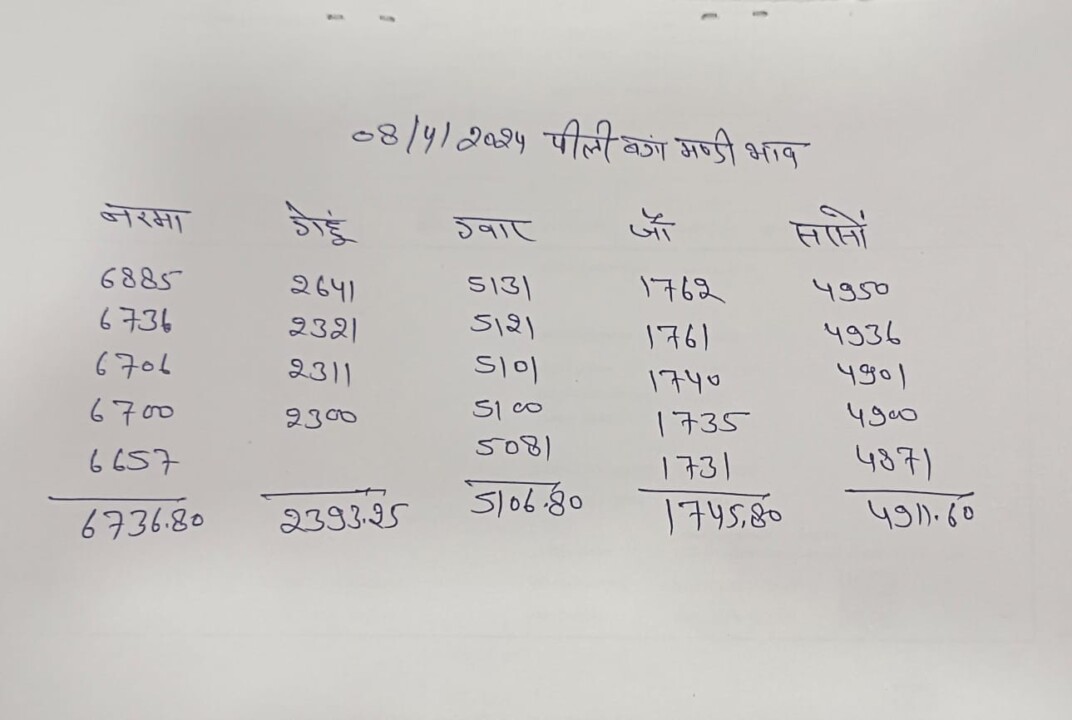 08/4/2024 पीली बंगा मण्डी भाव
नरमा गेहूं ग्वार जौ सरसों
6885 2641 5131 1762 4950
6736 2321 5121 1761 4936
6706 2311 5101 1740 4901
6700 2300 5100 1735 4900
6657 5081 1731 4871
6736.80 2393.25 5106.80 1745.80 4911.60